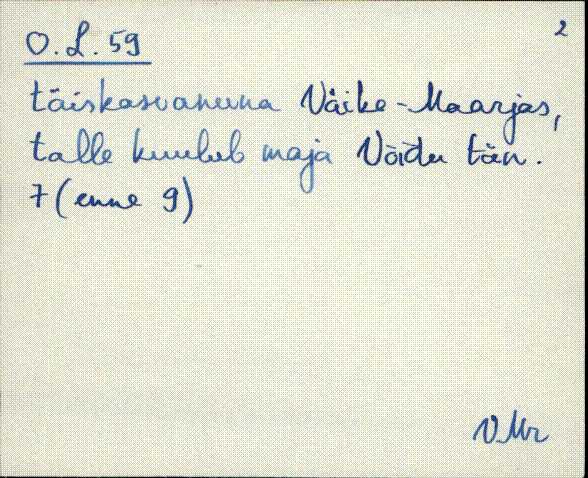 2
O.L.59
täiskasvanuna Väike-Maarjas,
talle kuulub maja Võidu tän.
7 (enne 9)
VMr